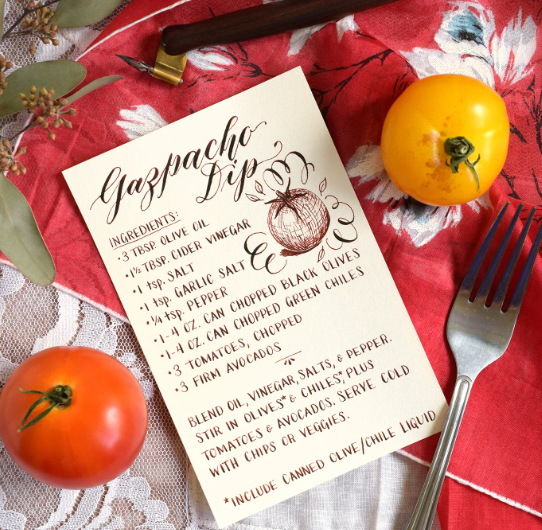 Gazpacho
Dip
INGREDIENTS:
•3 TBSP. OLIVE OIL
•1½ TBSP. CIDER VINEGAR
•1 tsp. SALT
•1 tsp. GARLIC SALT
•¼ tsp. PEPPER
•1-4 OZ. CAN CHOPPED BLACK OLIVES
•1-4 OZ. CAN CHOPPED GREEN CHILES
•3 TOMATOES, CHOPPED
•3 FIRM AVOCADOS
BLEND OIL, VINEGAR, SALTS, & PEPPER.
STIR IN OLIVES* & CHILES,* PLUS
TOMATOES & AVOCADOS. SERVE COLD
WITH CHIPS OR VEGGIES.
*INCLUDE CANNED OLIVE/CHILE LIQUID